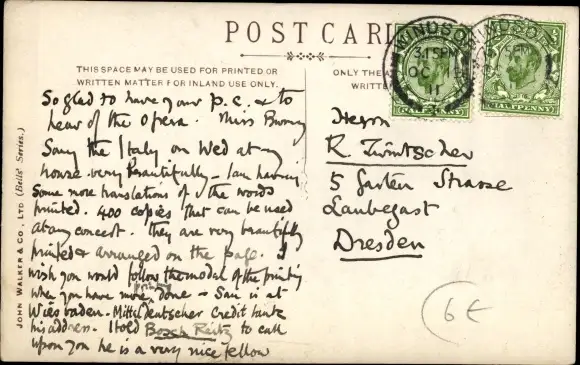 POST CARD
THIS SPACE MAY BE USED FOR PRINTED OR
WRITTEN MATTER FOR INLAND USE ONLY.
ONLY THE A
WRITTE
WINDSOR
5 PM
OC
11
WINDSOR
5 PM
HALFPENNY
HALFPENNY
JOHN WALKER & CO., LTD (Bells' Series.)
So glad to have your p.c. & to
hear of the opera. Miss
Sang the Italy on Wed at my
house very beautifully – I am having
Some more translations of the words
printed. 400 copies that can be used
at any concert. they are very beautifully
printed & arranged on the page. I
wish you would follow the model of the printing
when you have more printing done – Sau is at
Wiesbaden. Mittel deutscher Credit bank
his address. I told Bosch Reitz to call
upon you he is a very nice fellow
Herrn
R.
5 Garten Strasse
Laubegast
Dresden
6€